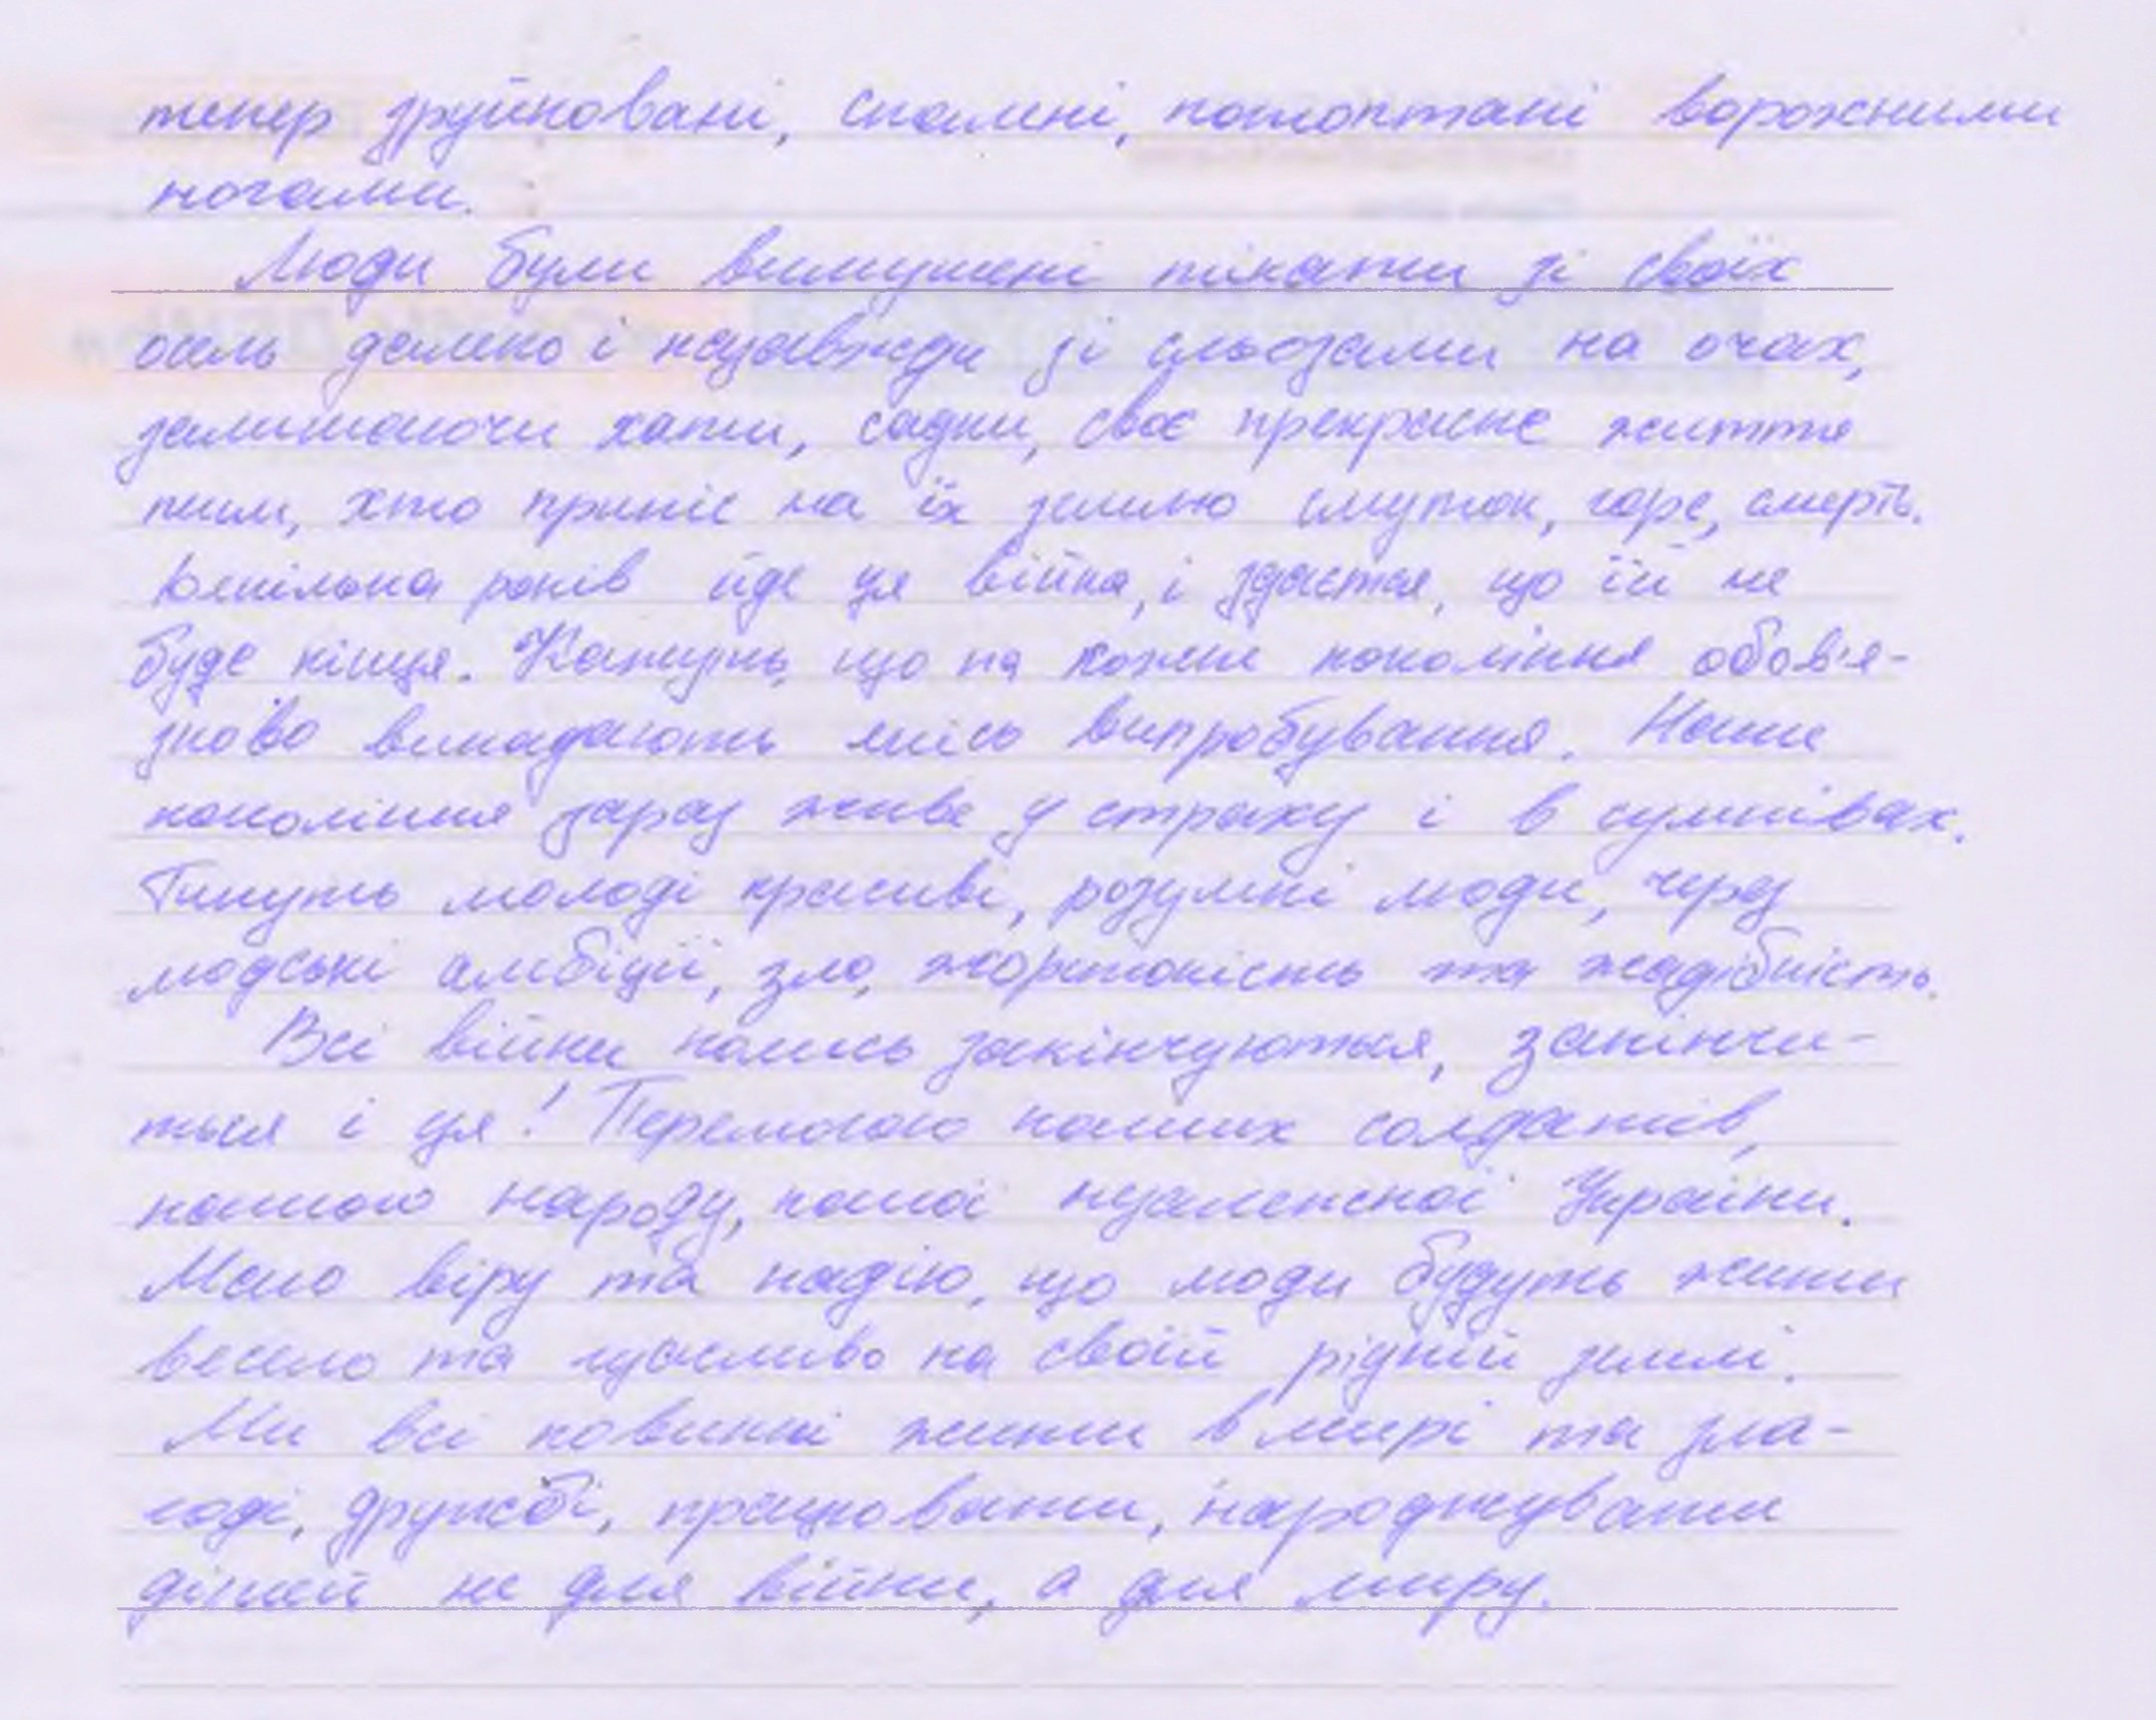 тепер зруйновані, спалені, потоптані ворожними
ногами.
Люди були вимушені тікати зі своїх
осель далеко і незавжди зі сльозами на очах,
залишаючи хати, садки, своє прекрасне життя
тим, хто приніс на їх землю смуток, горе, смерть.
Декілька років йде ця війна, і здається, що їй не
буде кінця. Кажуть, що на кожне покоління обов'я-
зково випадають якісь випробування. Наше
покоління зараз живе у страху і в сумнівах.
Гинуть молоді красиві, розумні люди, через
людські амбіції, зло, жорстокість та жадібність.
Всі війни колись закінчуються, закінчи-
ться і ця! Перемогою наших солдатів,
нашого народу, нашої незалежної України.
Маю віру та надію, що люди будуть жити
весело та щасливо на своїй рідній землі.
Ми всі повинні жити в мирі та зла-
годі, дружбі, працювати, народжувати
дітей не для війни, а для миру.